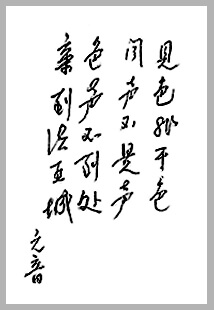 见色非干色
闻声不是声
色声不到处
亲到法王城
元音